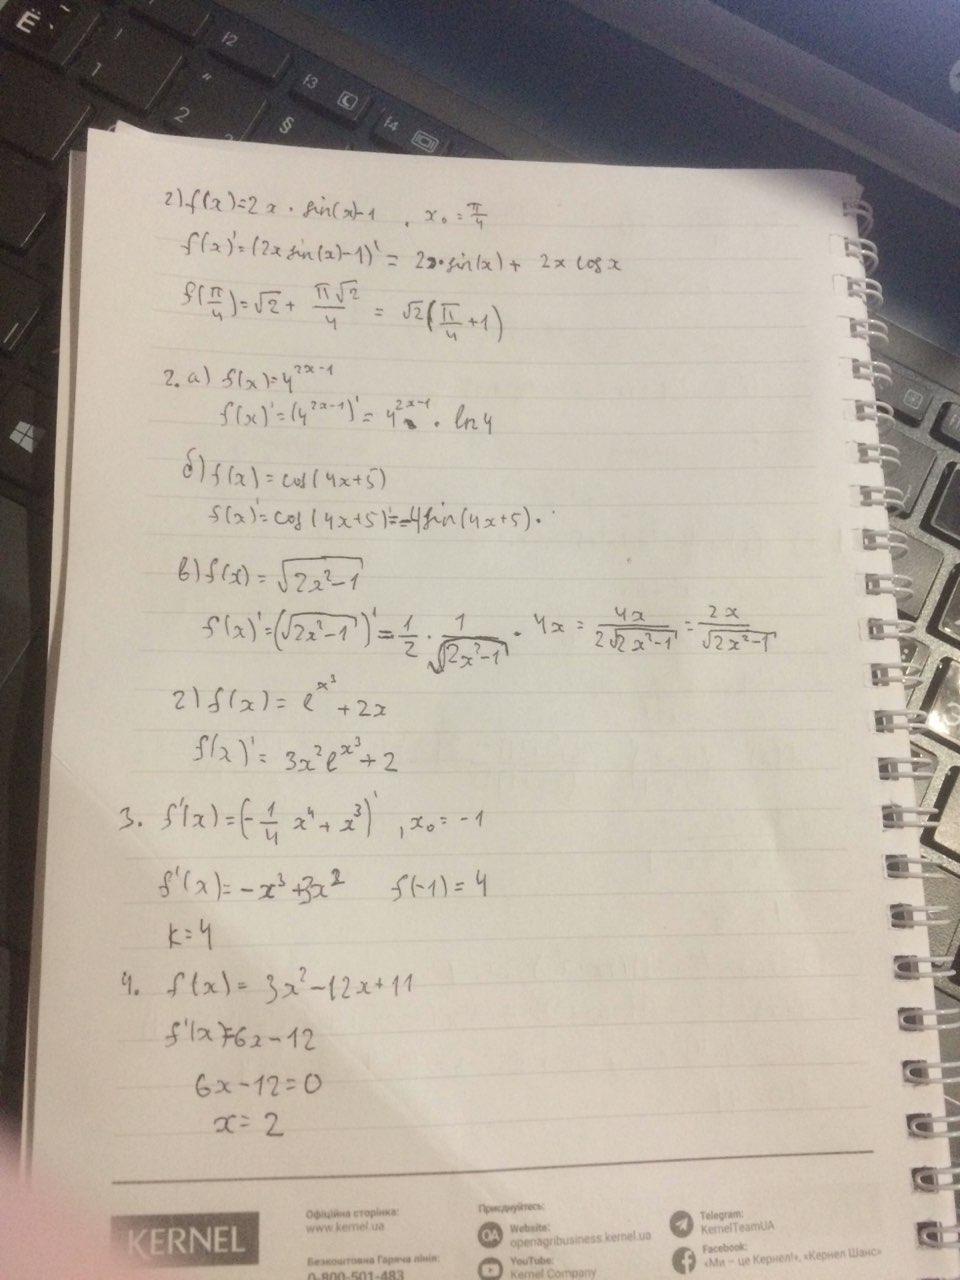 Ё
!
1
F2
"
2
F3
§
3
F4
г) f(x)=2x · sin(x)-1 , x₀ = π/4
f(x)'=(2x sin(x)-1)' = 2·sin(x) + 2x cos x
f(π/4)=√2 + π√2/4 = √2(π/4 +1)
2. а) f(x)=4^(2x-1)
f(x)'=(4^(2x-1))' = 4^(2x-1) · ln4
б) f(x) = cos(4x+5)
f(x)'=cos(4x+5)'=-4sin(4x+5).
в) f(x) = √(2x²-1)
f(x)'=(√(2x²-1))' = 1/2 · 1/√(2x²-1) · 4x = 4x/(2√(2x²-1)) = 2x/√(2x²-1)
г) f(x) = e^(x³) +2x
f(x)' = 3x²e^(x³) + 2
3. f'(x)=(-1/4 x⁴ + x³)' , x₀ = -1
f'(x)= -x³ +3x² f(-1) = 4
k=4
4. f(x) = 3x²-12x+11
f'(x)=6x-12
6x-12=0
x= 2
KERNEL
Офіційна сторінка:
www.kernel.ua
Безкоштовна Гаряча лінія:
0-800-501-483
Приєднуйтесь:
OA
Website:
openagribusiness.kernel.ua
YouTube:
Kernel Company
Telegram:
KernelTeamUA
Facebook:
«Ми – це Кернел!», «Кернел Шанс»